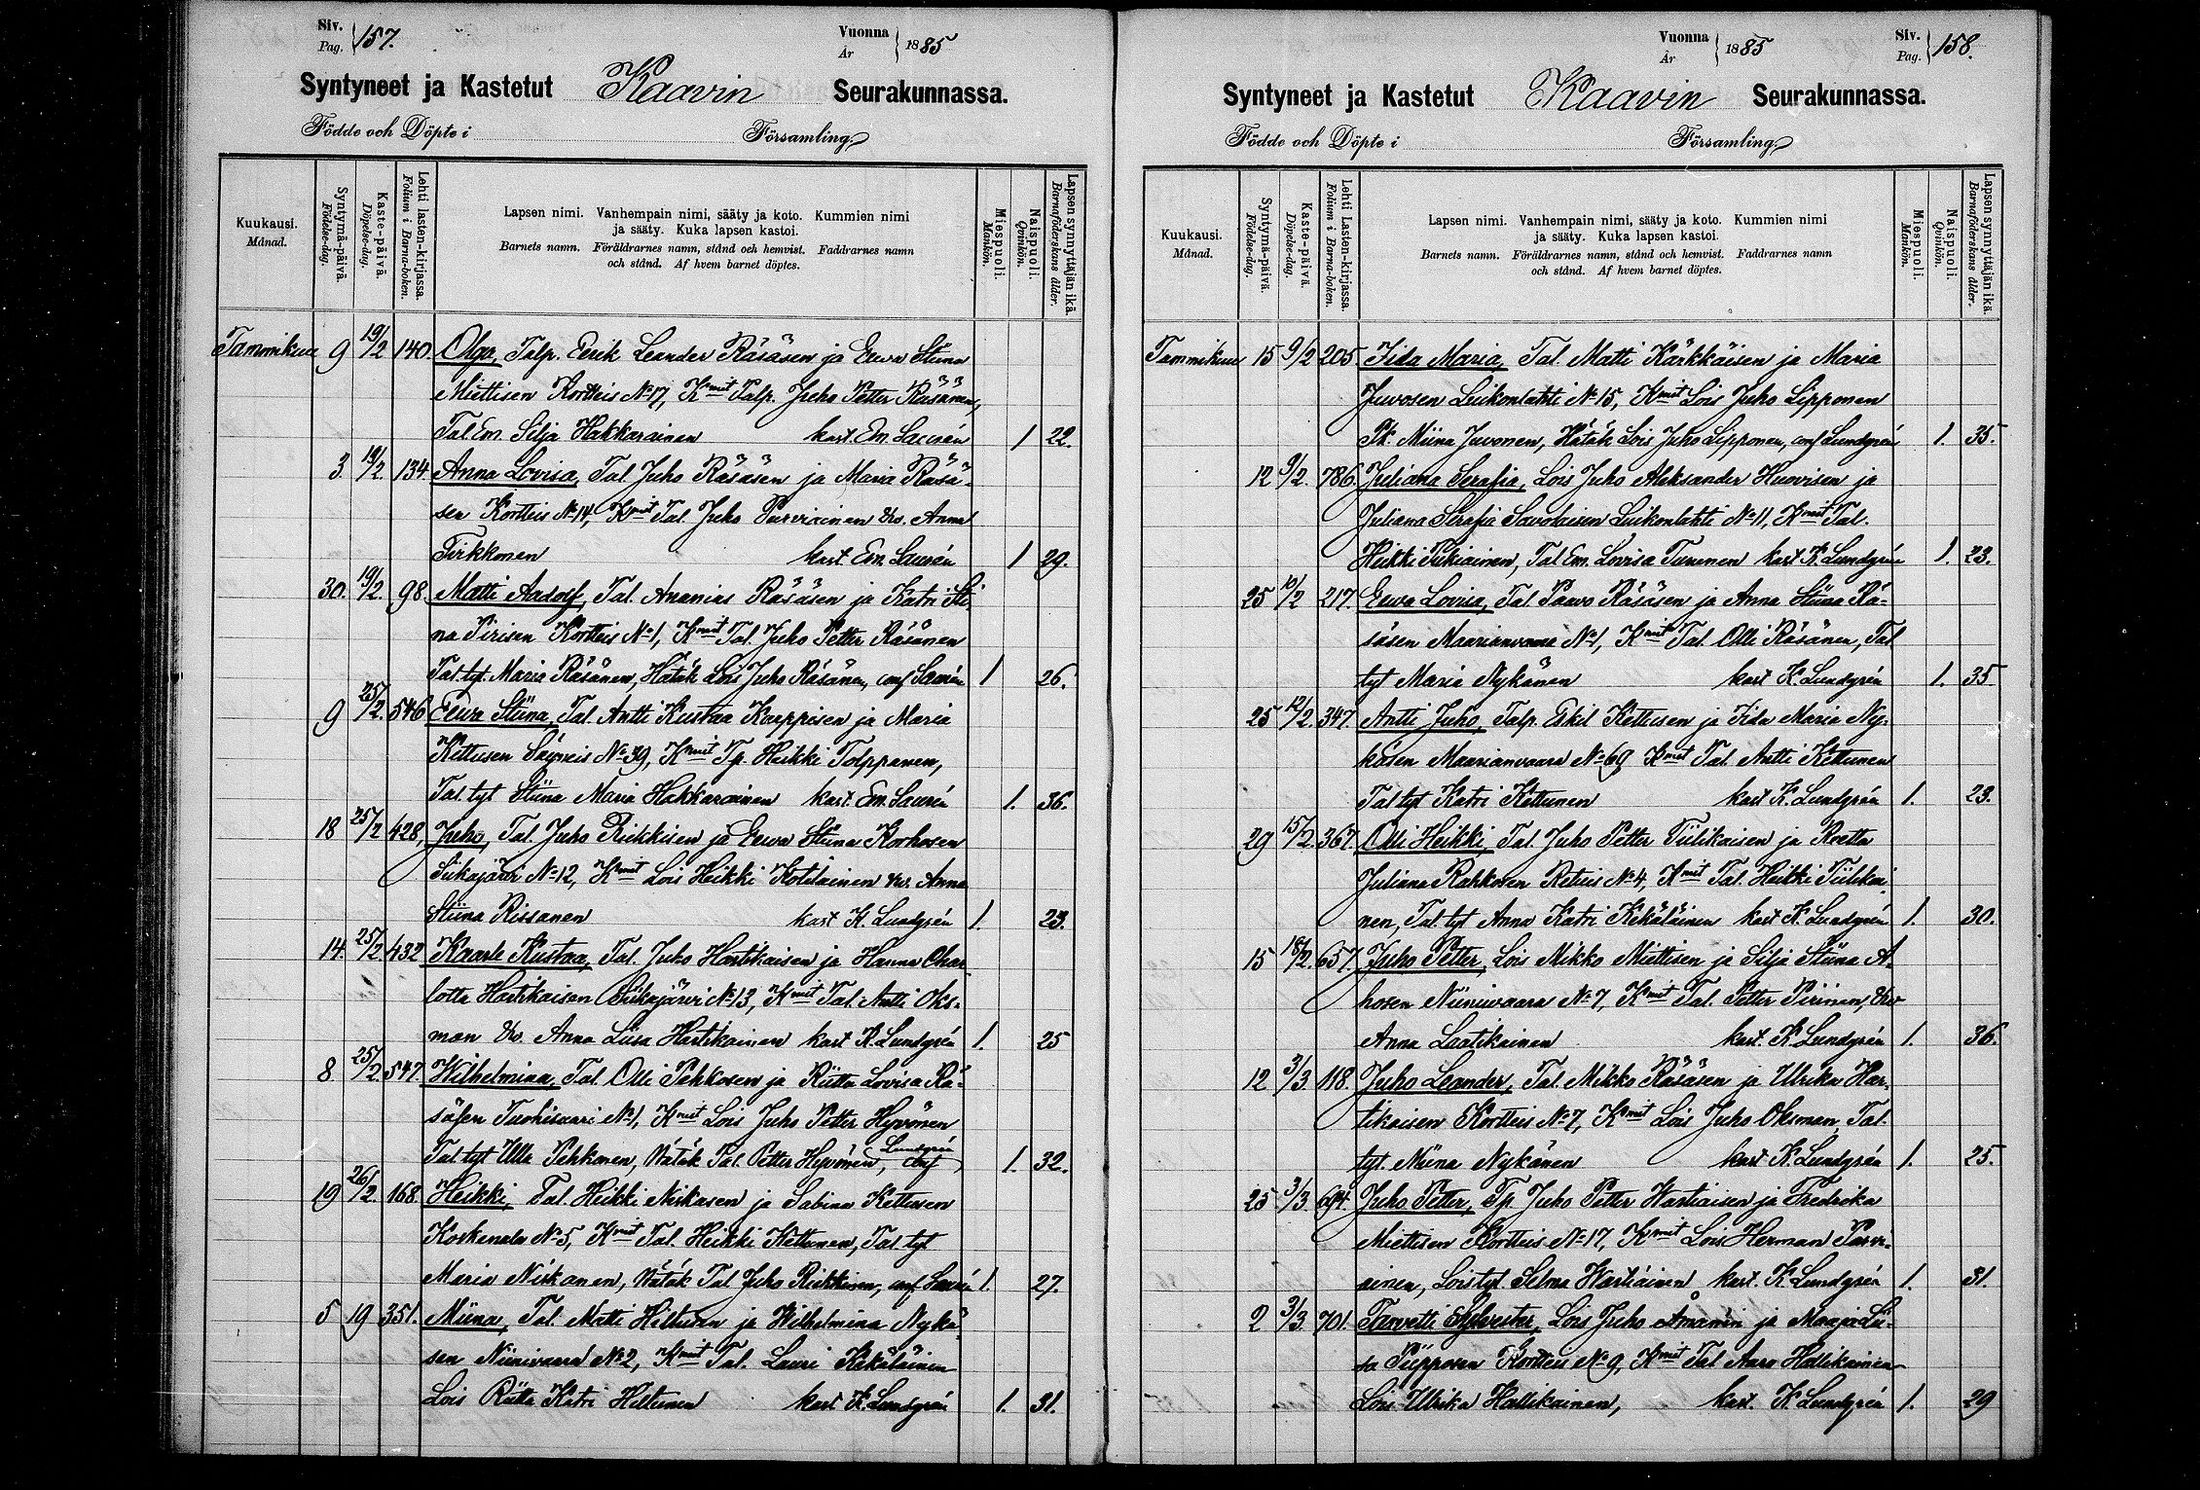 Siv. Pag. 157.
Vuonna År 1885
Syntyneet ja Kastetut Kaavin Seurakunnassa.
Födde och Döpte i Församling
Kuukausi. Månad.
Syntymä-päivä. Födelse-dag.
Kaste-päivä. Döpelse-dag.
Lehti lasten-kirjassa. Folium i Barna-boken.
Lapsen nimi. Vanhempain nimi, sääty ja koto. Kummien nimi
ja sääty. Kuka lapsen kastoi.
Barnets namn. Föräldrarnes namn, stånd och hemvist. Faddrarnes namn
och stånd. Af hvem barnet döptes.
Miespuoli. Mankön.
Naispuoli. Qvinkön.
Lapsen synnyttäjän ikä. Barnaföderskans ålder.
Tammikuu 9 19/2 140. Olga, Talp. Eerik Leander Räsäsen ja Eewa Stiina
Miettisen Kortteis No 17, Kmit Talp. Juho Petter Räsänen,
Tal. Em. Silja Hakkarainen kast. Em. Saurén 1 22.
3. 19/2. 134. Anna Lovisa, Tal. Juho Räsäsen ja Maria Räsä-
sen Kortteis No 14, Kmit Tal. Juho Parviainen Vo. Anna
Tirkkonen kast. Em. Saurén 1 29.
30. 19/2. 98. Matti Aadolf, Tal. Ananias Räsäsen ja Katri Sti-
na Pirisen Kortteis No 1, Kmit Tal. Juho Petter Räsänen
Tal. tyt. Maria Räsänen, Hätäk Lois Juho Räsänen, conf Saurén 1 26.
9 25/2. 546 Eewa Stiina, Tal. Antti Kustaa Karppisen ja Maria
Kettusen Säyneis No 39, Kmit Tp. Heikki Tolppanen,
Tal. tyt Stiina Maria Hakkarainen kast. Em. Saurén 1. 36.
18 25/2 428, Juho, Tal. Juho Riekkisen ja Eewa Stiina Korhosen
Siikajärvi No 12, Kmit Lois Heikki Kotilainen vo. Anna
Stiina Rissanen kast K. Lundgrén 1. 23.
14. 25/2 432 Kaarle Kustaa, Tal. Juho Hartikaisen ja Hanna Char
lotta Hartikaisen Siikajärvi No 13, Kmit Tal. Antti Oks-
man Vo. Anna Liisa Hartikainen kast K. Lundgrén 1. 25
8. 25/2 547. Wilhelmina, Tal. Olli Pehkosen ja Riitta Lovisa Rä-
säsen Tuohisaari No 1, Kmit Lois Juho Petter Hyvönen
Tal. tyt Ulla Pehkonen, Hätäk Tal. Petter Hyvönen, conf Lundgrén 1. 32.
19 26/2. 168. Heikki, Tal. Heikki Niskasen ja Sabina Kettusen
Koskenala No 5, Kmit Tal. Heikki Kettunen, Tal. tyt
Maria Niskanen, Hätäk Tal Juho Riekkinen, conf Saurén 1. 27.
5 19 351. Miina, Tal. Matti Hiltusen ja Wilhelmina Nykä-
sen Niinivaara No 2, Kmit Tal. Lauri Kekäläinen
Lois Riitta Katri Hiltunen kast K. Lundgrén 1. 31.
Vuonna År 1885
Siv. Pag. 158.
Syntyneet ja Kastetut Kaavin Seurakunnassa.
Födde och Döpte i Församling
Kuukausi. Månad.
Syntymä-päivä. Födelse-dag.
Kaste-päivä. Döpelse-dag.
Lehti Lasten-kirjassa. Folium i Barna-boken.
Lapsen nimi. Vanhempain nimi, sääty ja koto. Kummien nimi
ja sääty. Kuka lapsen kastoi.
Barnets namn. Föräldrarnes namn, stånd och hemvist. Faddrarnes namn
och stånd. Af hvem barnet döptes.
Miespuoli. Mankön.
Naispuoli. Qvinkön.
Lapsen synnyttäjän ikä. Barnaföderskans ålder.
Tammikuu 15 9/2 205 Iida Maria, Tal. Matti Kärkkäisen ja Maria
Juvosen Luikonlahti No 15, Kmit Lois Juho Lipponen
Pk. Miina Juvonen, Hätäk Lois Juho Lipponen, conf Lundgrén 1. 35.
12 9/2. 786. Juliana Serafia, Lois Juho Aleksander Huovisen ja
Juliana Serafia Savolaisen Luikonlahti No 11, Kmit Tal.
Heikki Tukiainen, Tal Em. Lovisa Turunen kast K. Lundgrén 1. 23.
25 10/2 217. Eewa Lovisa, Tal. Paavo Räsäsen ja Anna Stiina Rä-
säsen Maarianvaara No 1, Kmit Tal. Olli Räsänen, Tal
tyt Maria Nykänen kast K. Lundgrén 1. 35
25 12/2. 347. Antti Juho, Talp. Eskil Kettusen ja Iida Maria Ny-
käsen Maarianvaara No 69 Kmit Tal. Antti Kettunen
Tal tyt Katri Kettunen kast K. Lundgrén 1. 23.
29 15/2. 367. Olli Heikki, Tal. Juho Petter Tiilikaisen ja Reetta
Juliana Rahkosen Retuis No 4, Kmit Tal. Heikki Tiilikai
nen, Tal. tyt Anna Katri Kekäläinen kast K. Lundgrén 1. 30.
15 18/2. 657. Juho Petter, Lois Mikko Miettisen ja Silja Stiina A-
hosen Niinivaara No 7, Kmit Tal. Petter Piirinen, Vo
Anna Laatikainen kast. K. Lundgrén 1. 36.
12 3/3 118. Juho Leander, Tal. Mikko Räsäsen ja Ulrika Har-
tikaisen Kortteis No 7, Kmit Lois Juho Oksman, Tal.
tyt. Miina Nykänen kast K. Lundgrén 1. 25.
25 3/3. 694. Juho Petter, Tp. Juho Petter Hartiaisen ja Fredrika
Miettisen Kortteis No 17, Kmit Lois Herman Parvi-
ainen, Lois tyt. Selma Hartiainen kast. K. Lundgrén 1. 31.
2 3/3. 701. Taavetti Sylvester, Lois Juho Åmanin ja Maaja Lii-
sa Piipposen Kortteis No 9, Kmit Tal Aaro Hallikainen
Lois Ulrika Hallikainen, kast. K. Lundgrén 1. 29